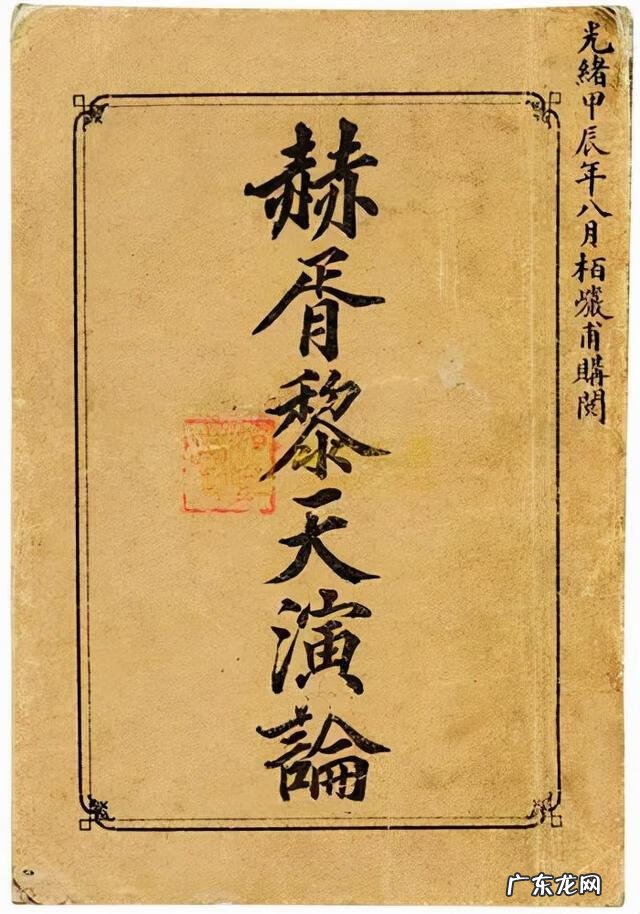 光緒甲辰年八月栢巗甫購閱
赫胥黎天演論
广东龙网